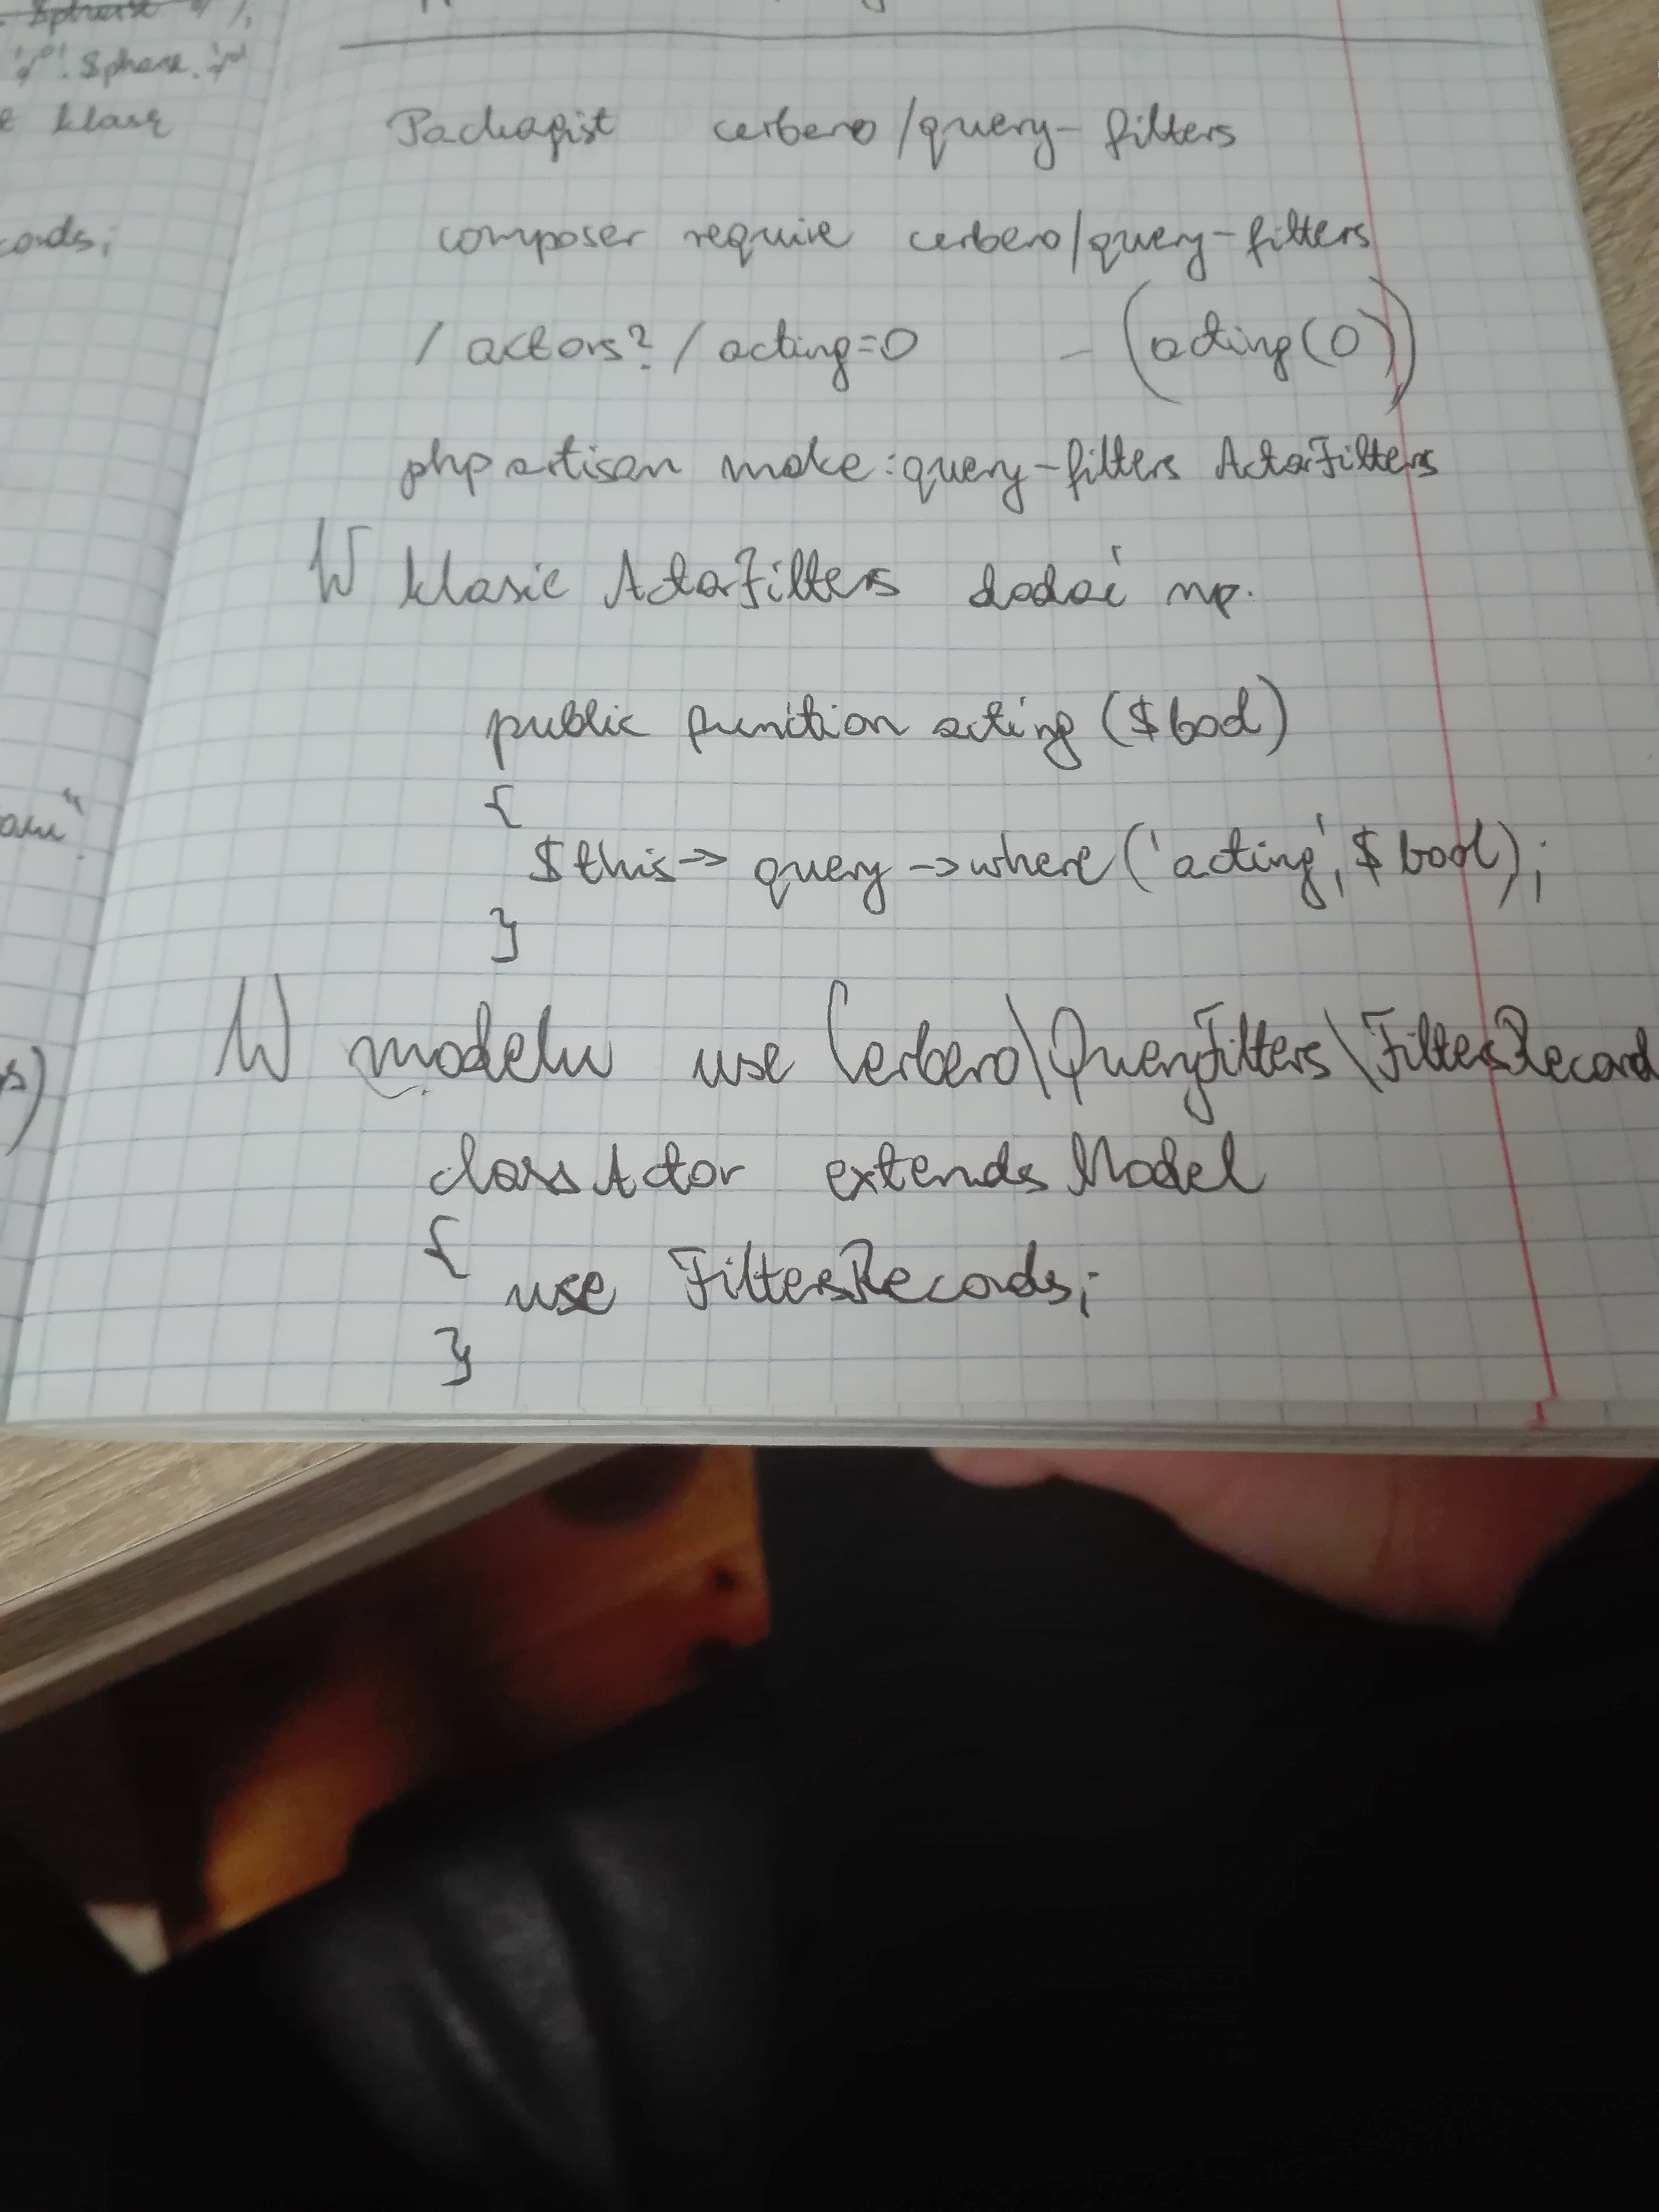 Sphase
Sphase.
klasę
cords;
s)
Packagist cerbero/query-filters
composer require cerbero/query-filters
/actors?/acting=0 - (acting(0))
php artisan make:query-filters ActorFilters
W klasie ActorFilters dodać np.
public function acting ($bool)
{
$this->query->where('acting', $bool);
}
W modelu use Cerbero\QueryFilters\FiltersRecord
class Actor extends Model
{
use FiltersRecords;
}